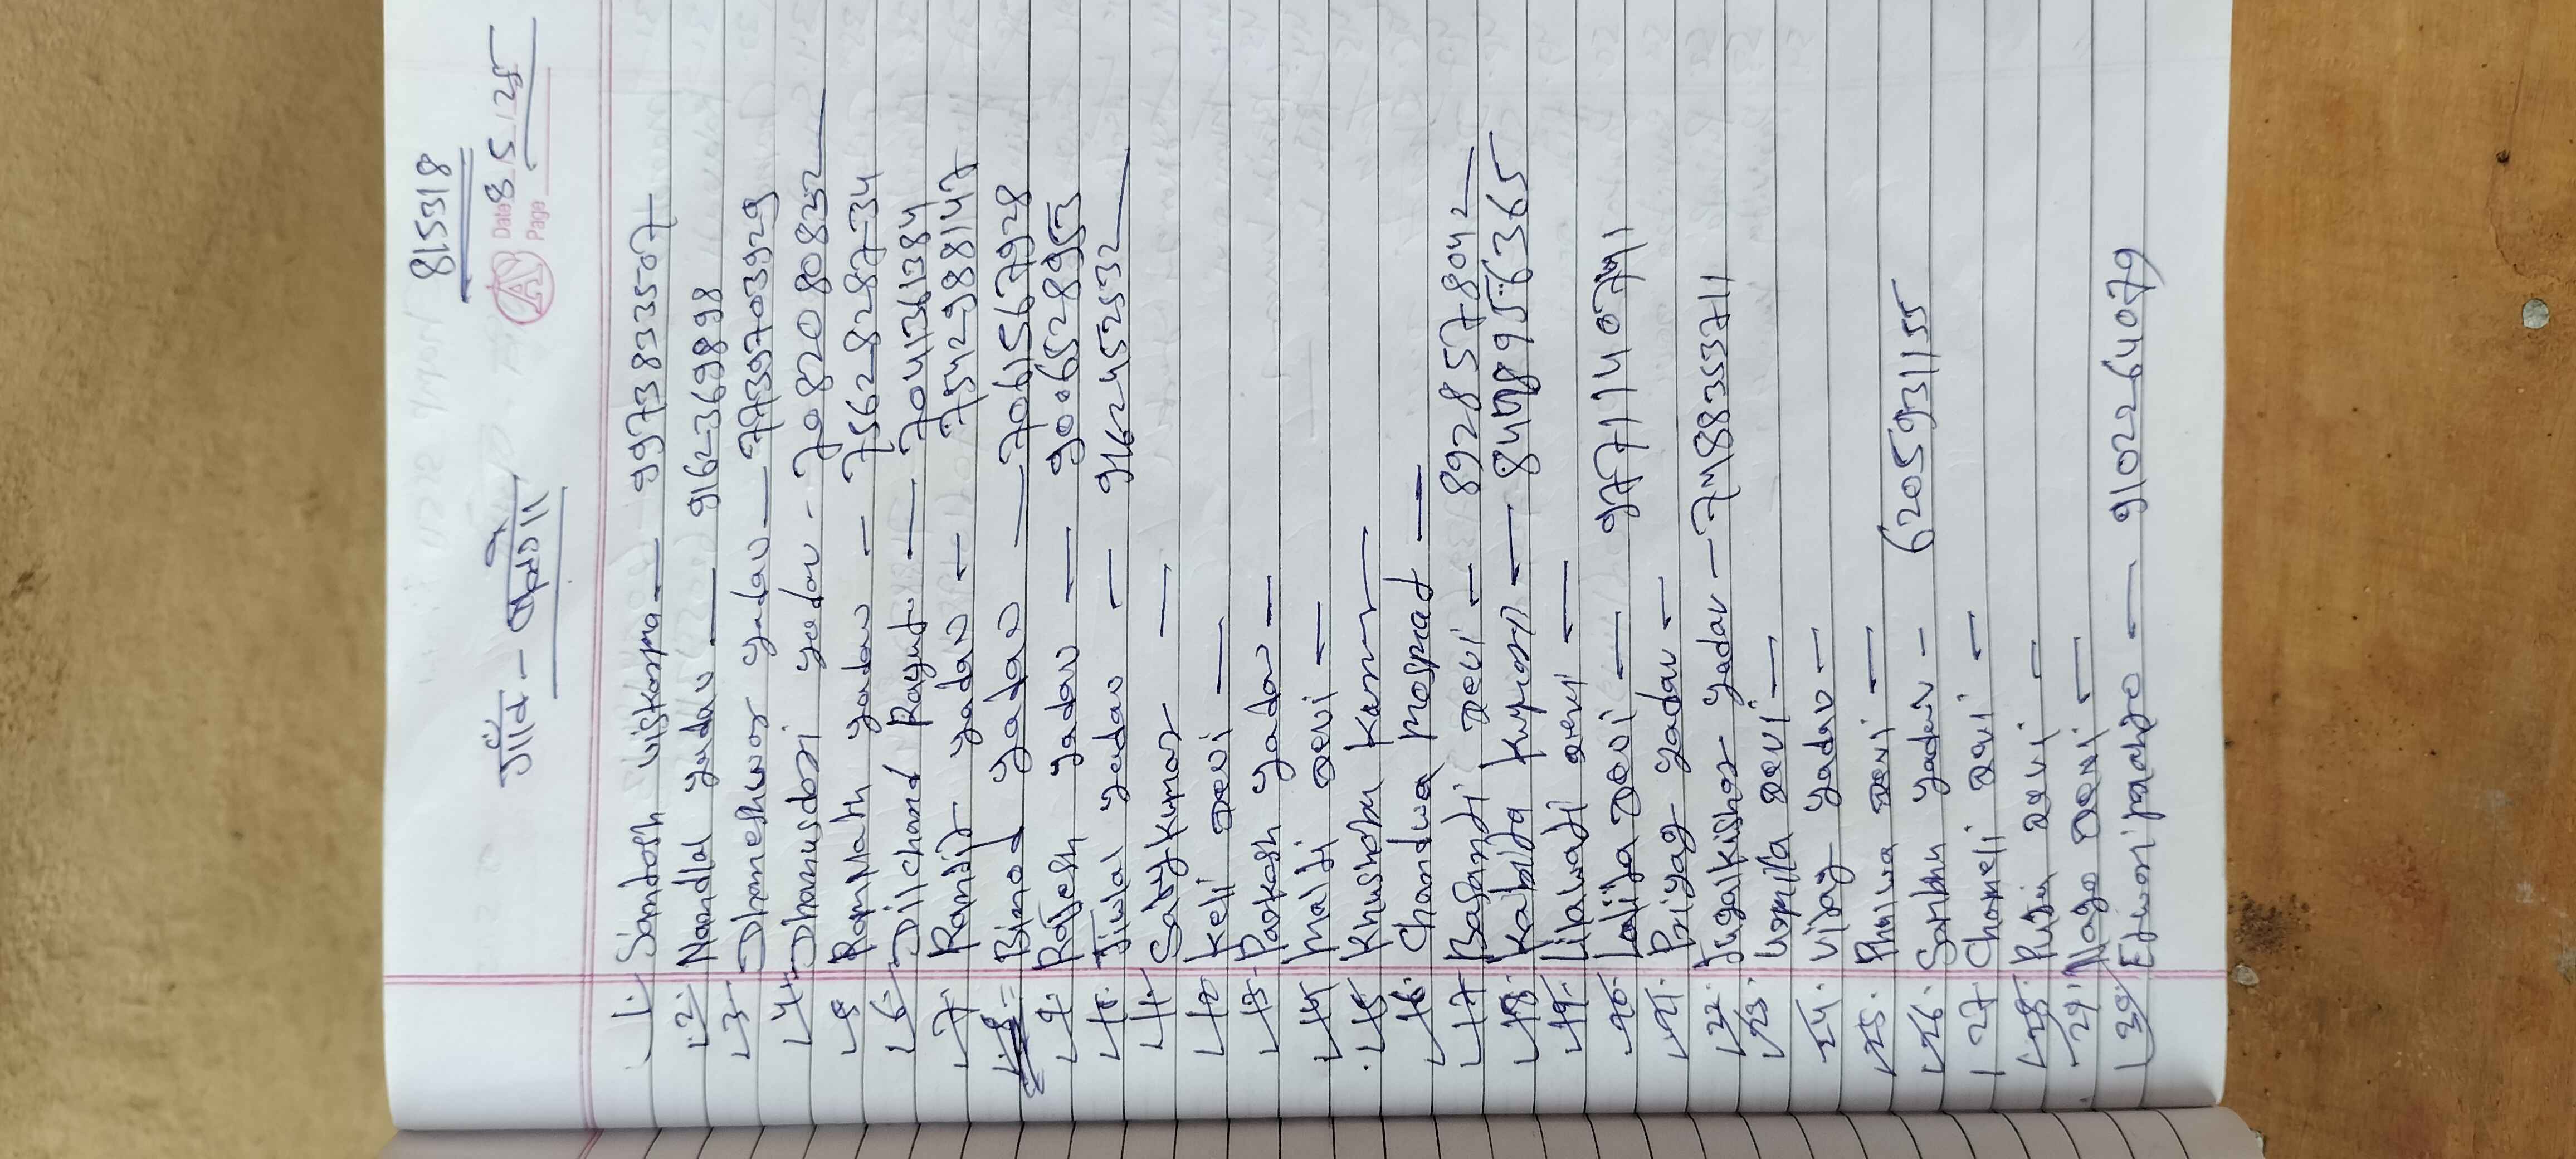 815318
गाँव -
Date 8.5.25
Page
1. Santosh viskarma — 9973833507
2. Nandlal yadav — 9162369898
3. Dhaneshwar yadav — 7739703929
4. Dhanusdari yadav - 7082080832
5. Ramnath yadav — 7562828734
6. Dillchand Rayut — 7041361384
7. Ranjit yadav — 7542988147
8. Binod yadav — 7061567928
9. Rajesh yadav — 9006528955
10. Jiwlal yadav — 9162452532
11. Sarykumar —
12. Keli Devi —
13. Parkash yadav —
14. Malti Devi —
15. Khushbhu Kumari
16. Chandwa Mosmat —
17. Basanti Devi — 8928578042
18. Kabita Kumari — 6365
19. Lilawati Devi —
20. Lalita Devi — 9771140741
21. Priyag yadav —
22. Jugalkishor yadav — 7488353711
23. Uarmilla Devi —
24. Vijay yadav —
25. Phulwa Devi —
26. Sambhu yadav — 6205931155
27. Chameli Devi —
28. Devi —
29. Nago Devi —
30. — 9102264079